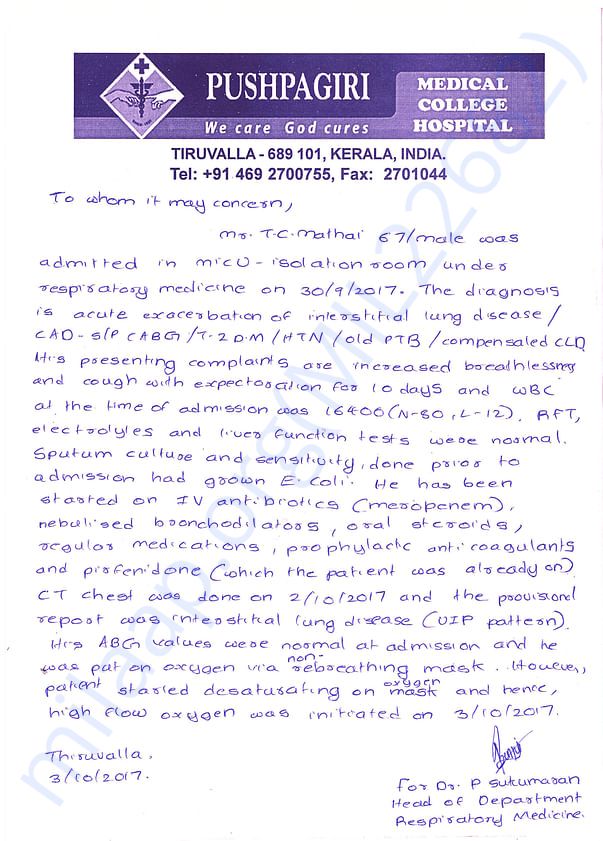 PUSHPAGIRI
We care God cures
MEDICAL
COLLEGE
HOSPITAL
TIRUVALLA - 689 101, KERALA, INDIA.
Tel: +91 469 2700755, Fax: 2701044
To whom it may concern,
Mr. T.C. Mathai 67/male was
admitted in MICU - isolation room under
respiratory medicine on 30/9/2017. The diagnosis
is acute exacerbation of interstitial lung disease /
CAD - S/P CABG / T-2 DM / HTN / old PTB / compensated CLD
His presenting complaints are increased breathlessness
and cough with expectoration for 10 days and WBC
at the time of admission was 16400 (N-80, L-12). RFT,
electrolytes and liver function tests were normal.
Sputum culture and sensitivity, done prior to
admission had grown E. coli. He has been
started on IV antibiotics (meropenem),
nebulised bronchodilators, oral steroids,
regular medications, prophylactic anticoagulants
and pirfenidone (which the patient was already on)
CT chest was done on 2/10/2017 and the provisional
report was interstitial lung disease (UIP pattern).
His ABG values were normal at admission and he
was put on oxygen via non-rebreathing mask. However,
patient started desaturating on oxygen mask and hence,
high flow oxygen was initiated on 3/10/2017.
Thiruvalla,
3/10/2017.
for Dr. P Sukumaran
Head of Department
Respiratory Medicine.